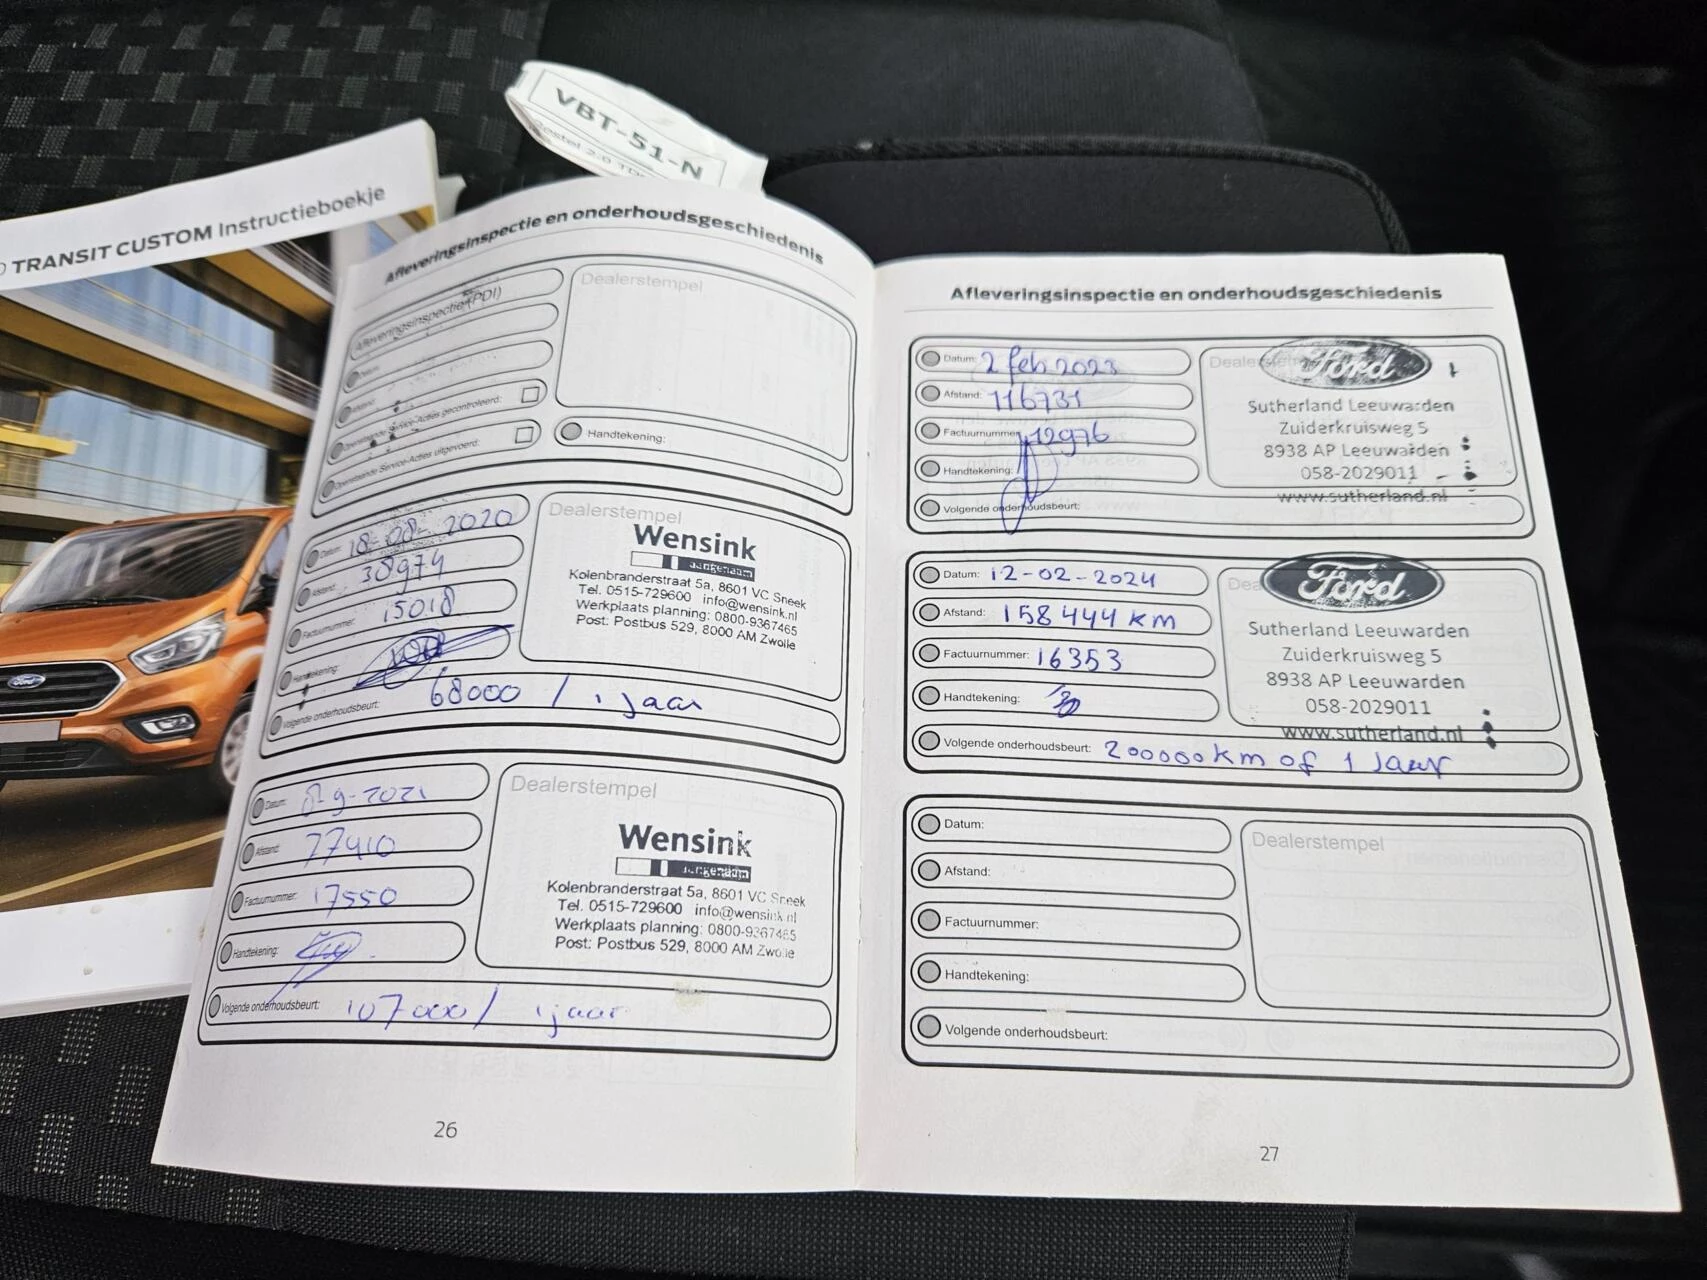 VBT-51-N
TRANSIT CUSTOM Instructieboekje
Ford
Afleveringsinspectie en onderhoudsgeschiedenis
Afleveringsinspectie (PDI)
Dealerstempel
Datum:
Afstand:
Openstaande Service-Acties gecontroleerd:
Openstaande Service-Acties uitgevoerd:
Handtekening:
Datum: 18-08-2020
Afstand: 38974
Factuurnummer: 15018
Handtekening:
Volgende onderhoudsbeurt: 68000 / 1 jaar
Dealerstempel
Wensink
aangenaam
Kolenbranderstraat 5a, 8601 VC Sneek
Tel. 0515-729600 info@wensink.nl
Werkplaats planning: 0800-9367465
Post: Postbus 529, 8000 AM Zwolle
Datum: 8-9-2021
Afstand: 77410
Factuurnummer: 17550
Handtekening:
Volgende onderhoudsbeurt: 107000 / 1 jaar
Dealerstempel
Wensink
aangenaam
Kolenbranderstraat 5a, 8601 VC Sneek
Tel. 0515-729600 info@wensink.nl
Werkplaats planning: 0800-9367465
Post: Postbus 529, 8000 AM Zwolle
26
Afleveringsinspectie en onderhoudsgeschiedenis
Datum: 2 feb 2023
Afstand: 116731
Factuurnummer: 12976
Handtekening:
Volgende onderhoudsbeurt:
Dealerstempel
Ford
Sutherland Leeuwarden
Zuiderkruisweg 5
8938 AP Leeuwarden
058-2029011
www.sutherland.nl
Datum: 12-02-2024
Afstand: 158444 KM
Factuurnummer: 16353
Handtekening:
Volgende onderhoudsbeurt: 200000 KM of 1 Jaar
Ford
Sutherland Leeuwarden
Zuiderkruisweg 5
8938 AP Leeuwarden
058-2029011
www.sutherland.nl
Datum:
Afstand:
Factuurnummer:
Handtekening:
Volgende onderhoudsbeurt:
Dealerstempel
27